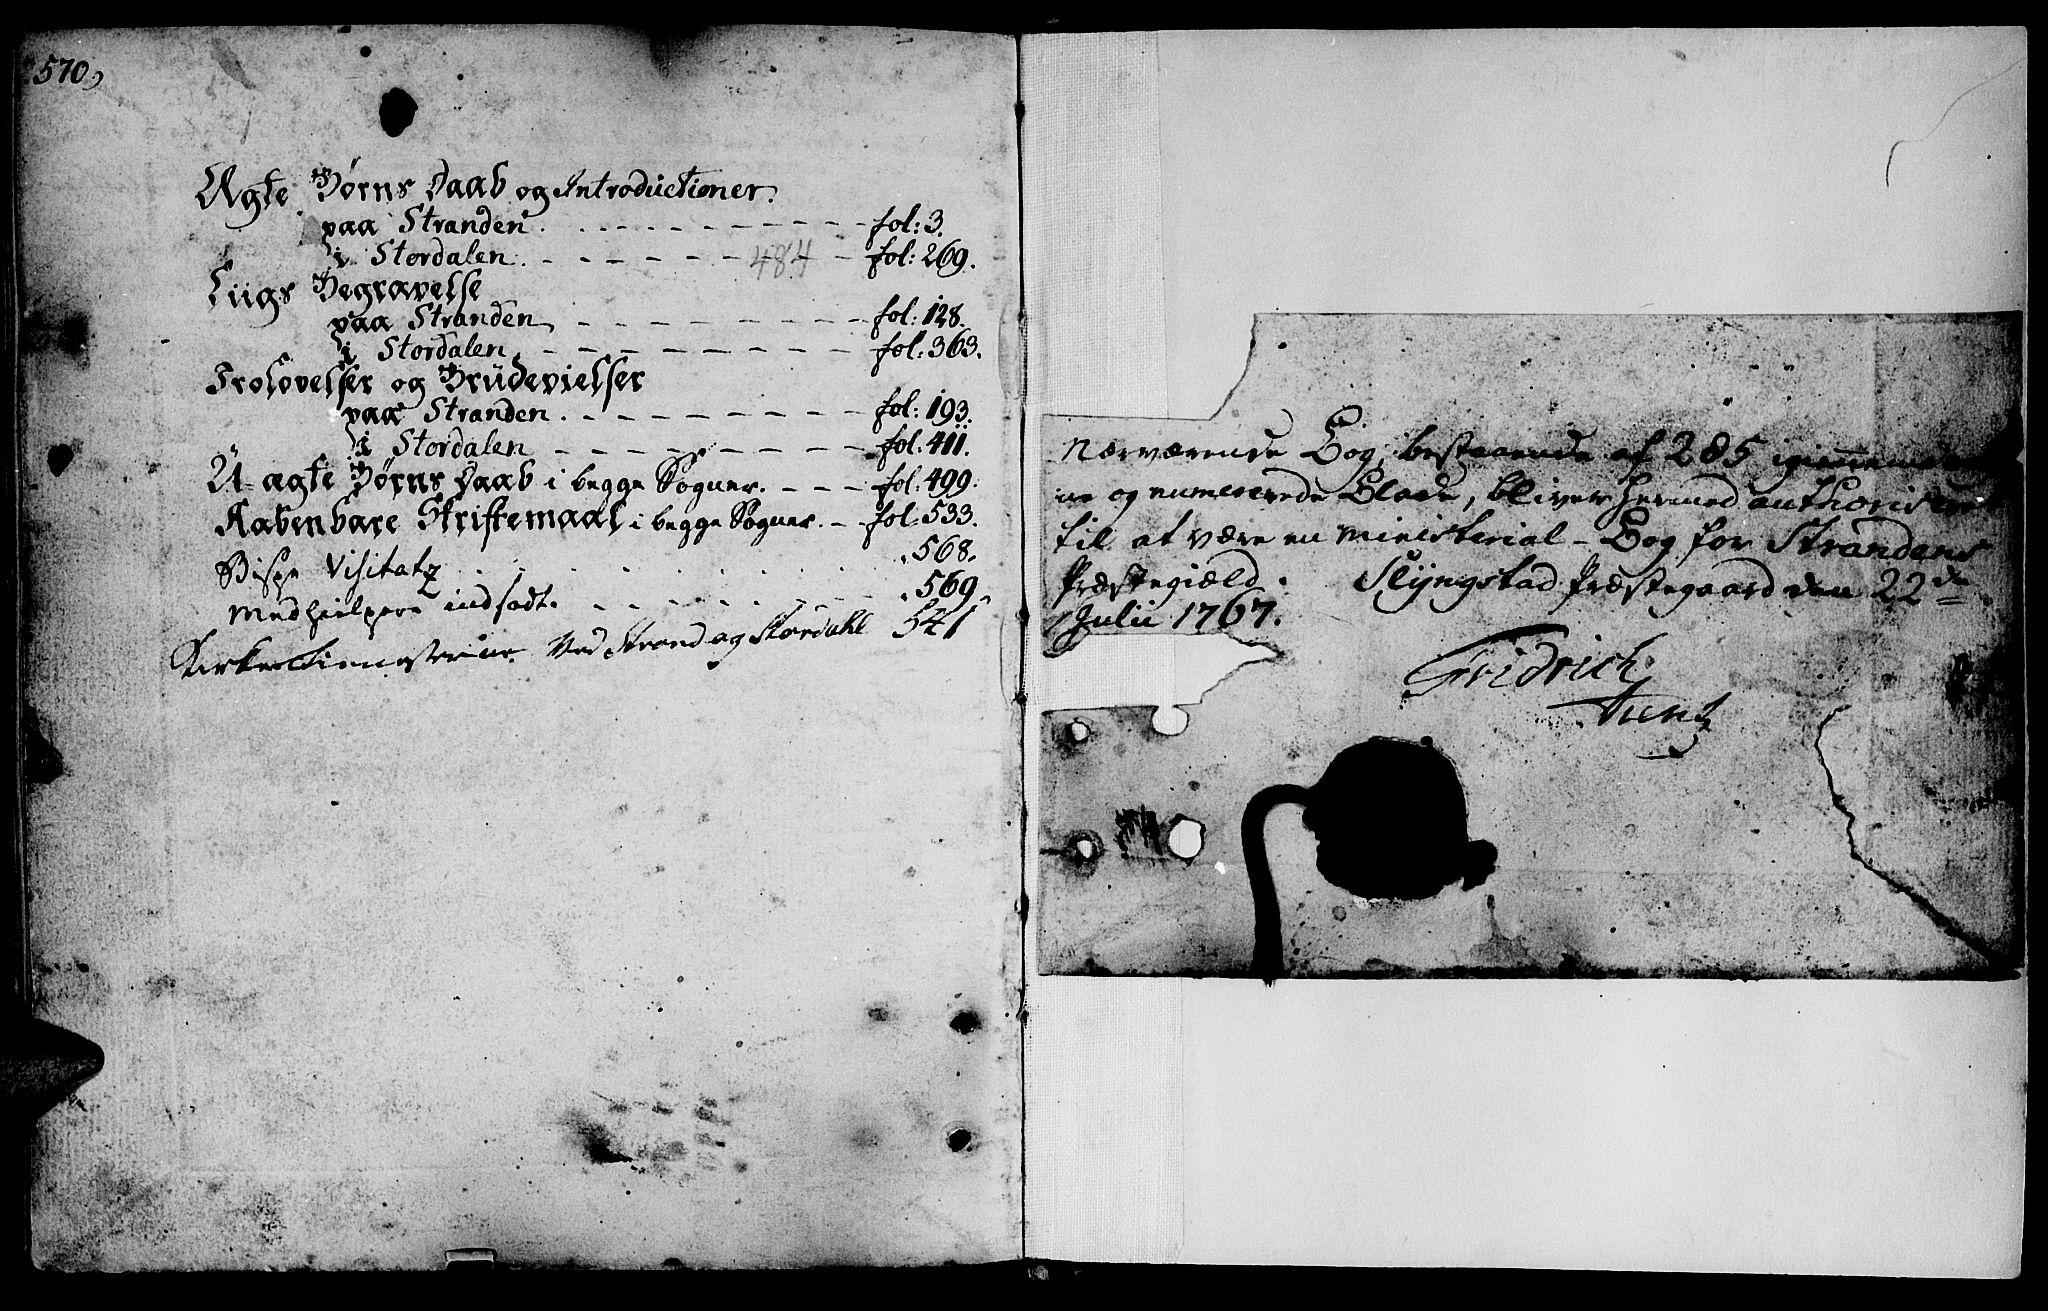 570,
Ægte Børns Daab og Introductioner.
paa Stranden. fol: 3.
i Stordalen. 484 fol: 269.
Liigs Begravelse
paa Stranden, fol: 128.
i Stordalen. fol: 363.
Trolovelser og Brüdevielser
paa Stranden. fol: 193.
i Stordalen fol: 411.
U-ægte Børns Daab i begge Sogner. fol: 499.
Aabenbare Skriftemaal i begge Sogner. fol: 533.
Bispe Visitatz 568.
Medhielpere indsadt. 569.
Ved Strand og Stordahl 541
Nærværende Bog, bestaaende af 285
ne og numererede Blade, bliver hermed authoriseret
til at være en Ministerial-Bog for Strandens
Præstegield. Slyngstad Præstegaard den 22de
Julii 1767.
Fridrich